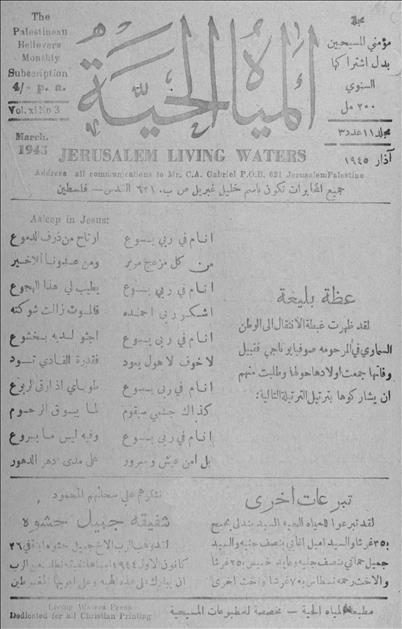 The
Palestinean
Believers
Monthly
Subscription
4/- p. a.
Vol. xi No 3
March.
1945
المياه الحية
مجلة
مؤمني المسيحيين
بدل اشتراكها
السنوي
٢٠٠ مل
مجلد ١١ عدد ٣
آذار ١٩٤٥
JERUSALEM LIVING WATERS
Address all communications to Mr. C.A. Gabriel P.O.B. 621 Jerusalem Palestine
جميع المخابرات تكون باسم خليل غبريل ص ب. ٦٢١ القدس — فلسطين
عظة بليغة
لقد ظهرت غبطة الانتقال الى الوطن
السماوي في المرحومه صوفيا بو ناجي فقبيل
وفاتها جمعت اولادها حولها وطلبت منهم
ان يشاركوها بترتيل الترتيلة التالية:
Asleep in Jesus:
انام في ربي يسوع ارتاح من ذرف الدموع
من كل مزعج مرير ومن عدونا الاخير
انام في ربي يسوع يطيب لي هذا الهجوع
اشكر ربي احمده فالموت زالت شوكته
انام في ربي يسوع اجثو لديه بخشوع
لا خوف لا هول يعود فقدرة الفادي تسود
انام في ربي يسوع طوباي اذ ارقى الربوع
كذاك جسمي سيقوم لما يسوق الرحوم
انام في ربي يسوع وفيه ليس ما يروع
بل امن عيش وسرور على مدى دهر الدهور
تبرعات اخرى
لقد تبرعوا للمياه الحيه السيد
٣٥ غرشا والسيد اميل اغابي بنصف جنيه والسيد
جميل حماتي بنصف جنيه خميس ٢٥ غرشا
٧٠ غرشا واخت اخرى
شفيقه جميل حشوه
كانون الاول ١٩٤٤
Living Waters Press
Dedicated for all Christian Printing
مطبعة المياه الحية — مخصصة للمطبوعات المسيحية